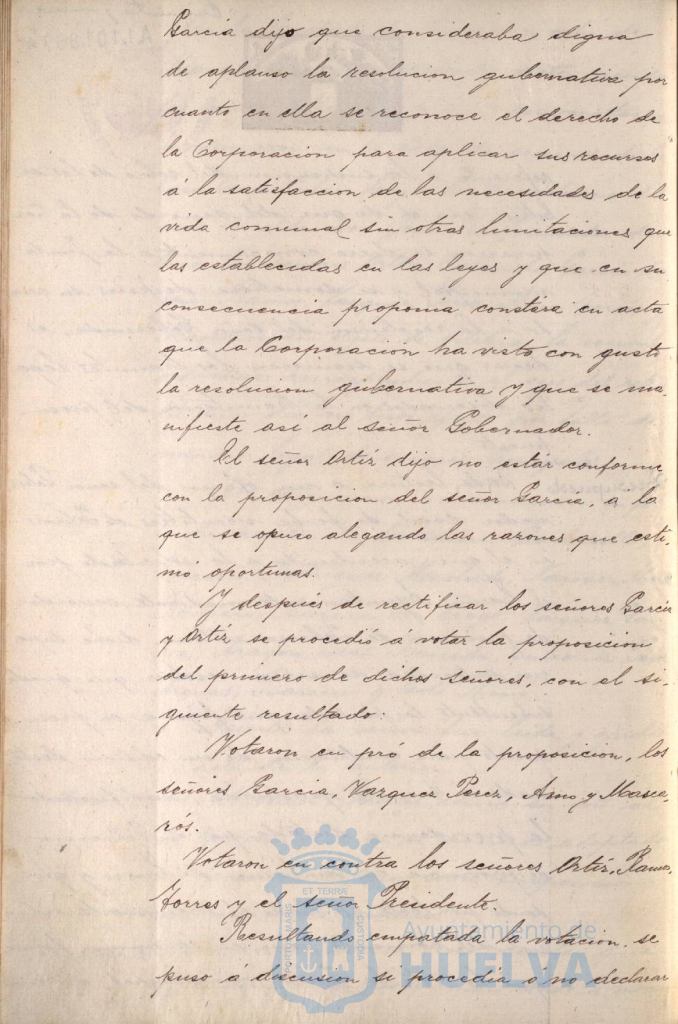 García dijo que consideraba digna
de aplauso la resolucion gubernativa por
cuanto en ella se reconoce el derecho de
la Corporación para aplicar sus recursos
á la satisfaccion de las necesidades de la
vida comunal sin otras limitaciones que
las establecidas en las leyes y que en su
consecuencia proponia constara en acta
que la Corporación ha visto con gusto
la resolucion gubernativa y que se ma-
nifieste así al señor Gobernador.
El señor Ortíz dijo no estar conforme
con la proposicion del señor García, á la
que se opuso alegando las razones que esti-
mó oportunas.
Y después de rectificar los señores García
y Ortíz se procedió á votar la proposicion
del primero de dichos señores, con el si-
guiente resultado:
Votaron en pró de la proposicion, los
señores Garcia, Vazquez Perez, Amo y Masca-
rós.
Votaron en contra los señores Ortíz, Ramos,
Torres y el señor Presidente.
Resultando empatada la votacion, se
puso á discusion si procedia ó no declarar
ET TERRÆ
PORTUS MARIS
CUSTODIA
Ayuntamiento de
HUELVA